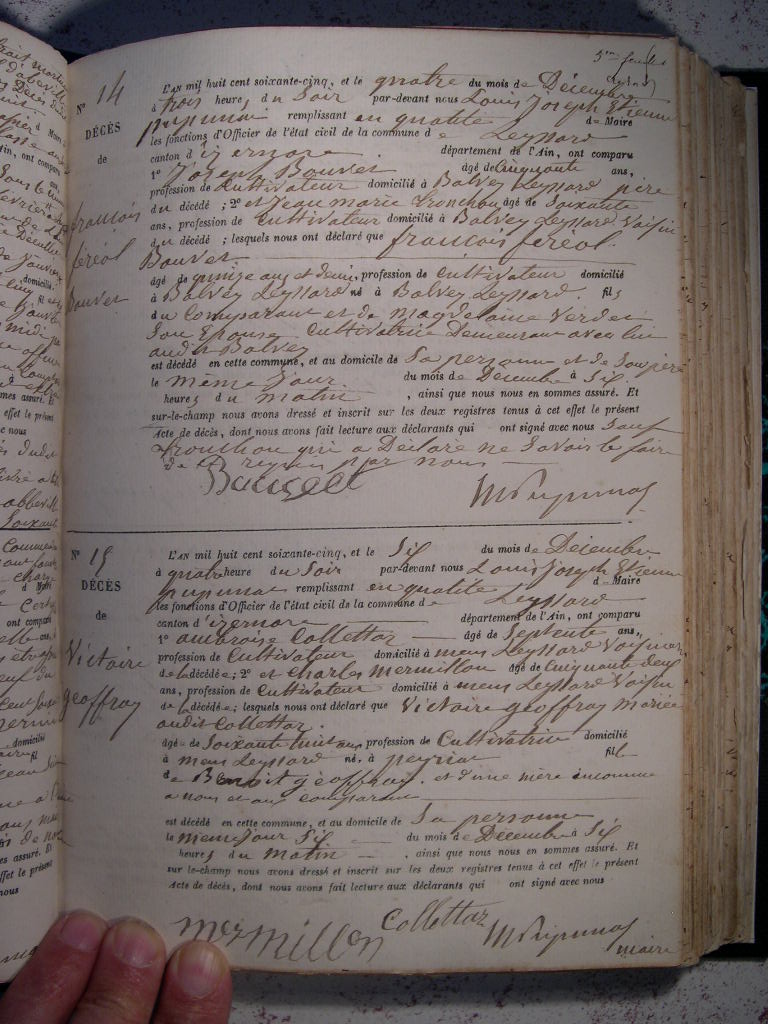 5me feuillet
N° 14
DÉCÈS
de
françois
féréol
Bouvet
L'AN mil huit cent soixante-cinq, et le quatre du mois de Décembre
à trois heures du Soir par-devant nous Louis Joseph Etienne
pupunat remplissant en qualité de Maire
les fonctions d'Officier de l'état civil de la commune de Leyssard
canton d'izernore département de l'Ain, ont comparu
1° Joseph Bouvet âgé de Cinquante ans,
profession de Cultivateur domicilié à Balvey Leyssard père
du décédé ; 2° et Jean marie Tronchon âgé de Soixante
ans, profession de Cultivateur domicilié à Balvey Leyssard Voisin
du décédé ; lesquels nous ont déclaré que françois féréol
Bouvet
âgé de quinze ans et demi, profession de Cultivateur domicilié
à Balvey Leyssard né à Balvey Leyssard. fils
du Comparant et de Magdelaine Verdet
Son Epouse Cultivatrice Demeurant avec lui
audit Balvey
est décédé en cette commune, et au domicile de Sa personne et de Son père
le même Jour du mois de Décembre à Six
heures du matin , ainsi que nous nous en sommes assuré. Et
sur-le-champ nous avons dressé et inscrit sur les deux registres tenus à cet effet le présent
Acte de décès, dont nous avons fait lecture aux déclarants qui ont signé avec nous Sauf
Tronchon qui a Déclaré ne Savoir le faire
de ce requis par nous
Bouvet MPupunat
N° 15
DÉCÈS
de
Victoire
Geoffray
L'AN mil huit cent soixante-cinq, et le Six du mois de Décembre
à quatre heure du Soir par-devant nous Louis Joseph Etienne
pupunat remplissant en qualité de Maire
les fonctions d'Officier de l'état civil de la commune de Leyssard
canton d'izernore département de l'Ain, ont comparu
1° ambroise Collettaz âgé de Septente ans,
profession de Cultivateur domicilié à mens Leyssard Voisin
de la décédée ; 2° et Charles Mermillon âgé de Cinquante deux
ans, profession de Cultivateur domicilié à mens Leyssard Voisin
de la décédée ; lesquels nous ont déclaré que Victoire geoffray mariée
audit Collettaz.
âgée de Soixante huit ans profession de Cultivatrice domicilié
à mens Leyssard né, à peyriat fille
de Benoit géoffray. et d'une mère inconnue
a nous et aux comparans
est décédé en cette commune, et au domicile de Sa personne
le même Jour Six du mois de Décembre à Six
heures du matin , ainsi que nous nous en sommes assuré. Et
sur le-champ nous avons dressé et inscrit sur les deux registres tenus à cet effet le présent
Acte de décès, dont nous avons fait lecture aux déclarants qui ont signé avec nous
Mermillon Collettaz MPupunat
maire